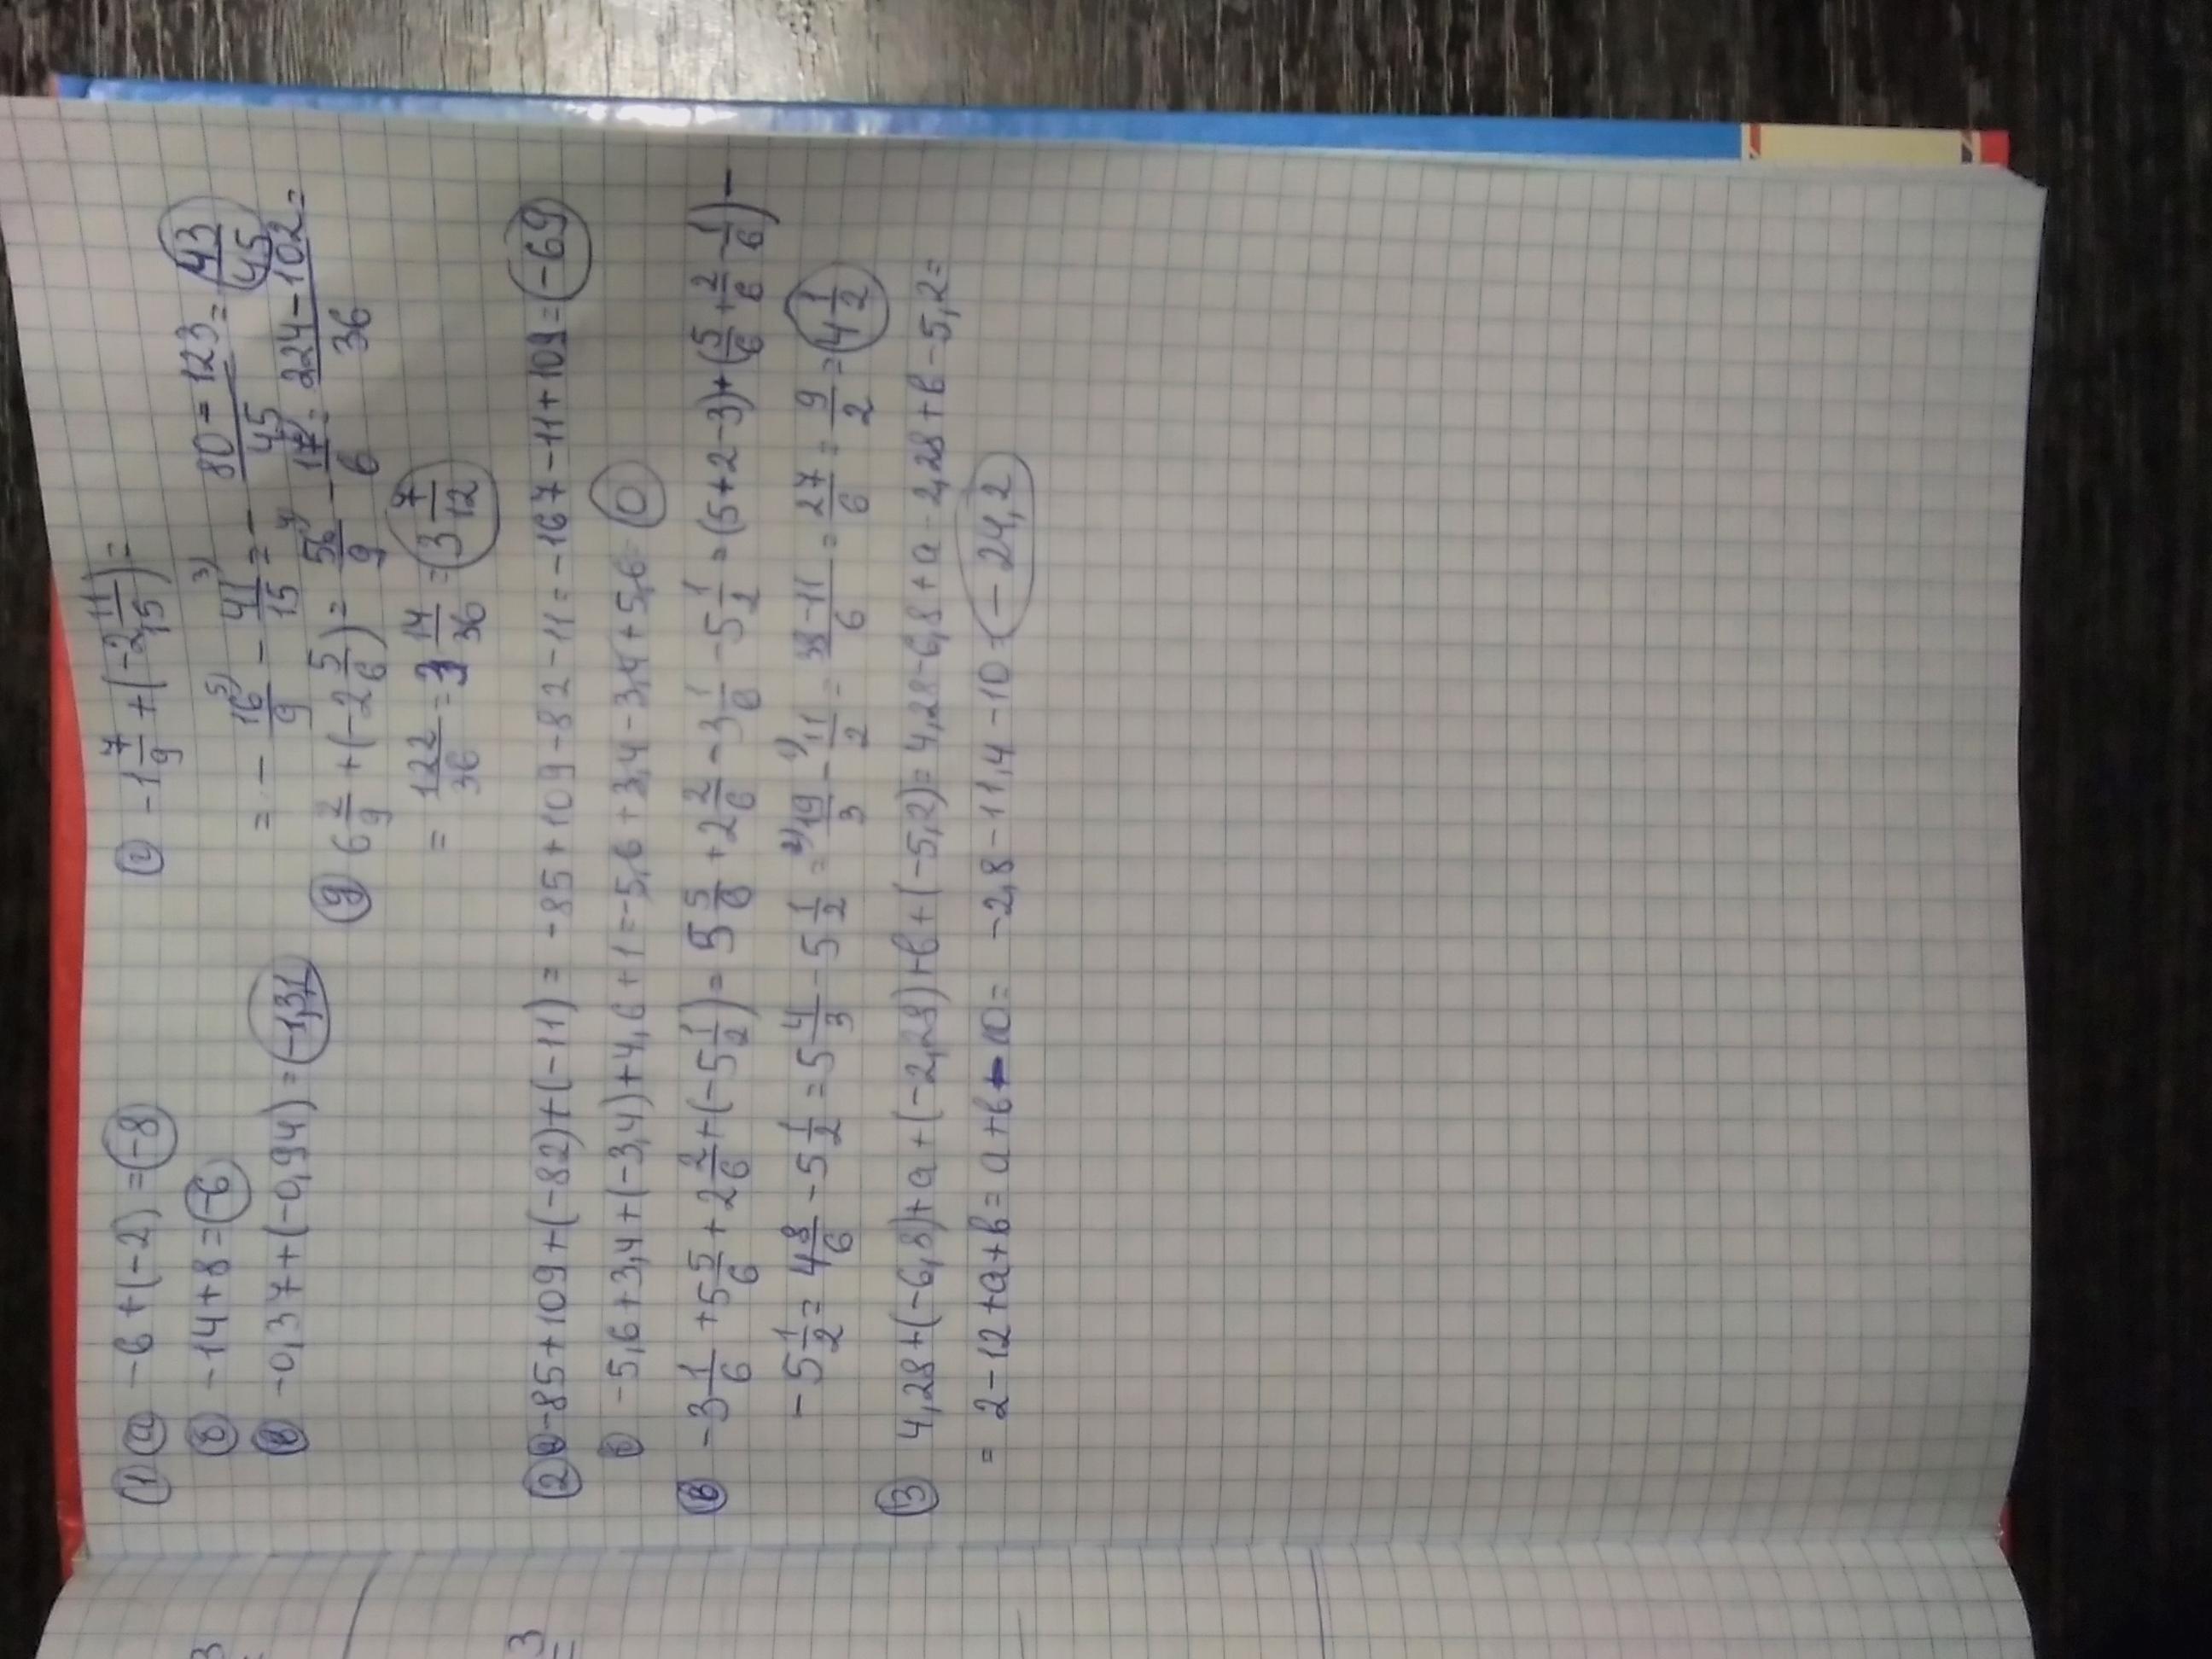 ① а −6+(−2)=−8
б −14+8=−6
в −0,37+(−0,94)=−1,31
г −1 7/9+(−2 11/15)=
= − 16/9 5) − 41/15 3) = − 80−123/45 = 43/45
д 6 2/9+(−2 5/6)= 56/9 4) − 17/6 = 224−102/36 =
= 122/36 = 3 14/36 = 3 7/12
② а −85+109+(−82)+(−11)= −85+109−82−11= −167−11+109=−69
б −5,6+3,4+(−3,4)+4,6+1=−5,6+3,4−3,4+5,6=0
в −3 1/6 +5 5/6 +2 2/6+(−5 1/2)= 5 5/6 +2 2/6 −3 1/6 −5 1/2 =(5+2−3)+(5/6+2/6−1/6)−
−5 1/2= 4 8/6 −5 1/2=5 4/3 −5 1/2 = 2) 19/3 − 11/2 = 38−11/6 = 27/6 = 9/2 = 4 1/2
③ 4,28+(−6,8)+а+(−2,28)+в+(−5,2)=4,28−6,8+а−2,28+в−5,2=
= 2−12+а+в= а+в−10= −2,8−11,4−10=−24,2
3
3